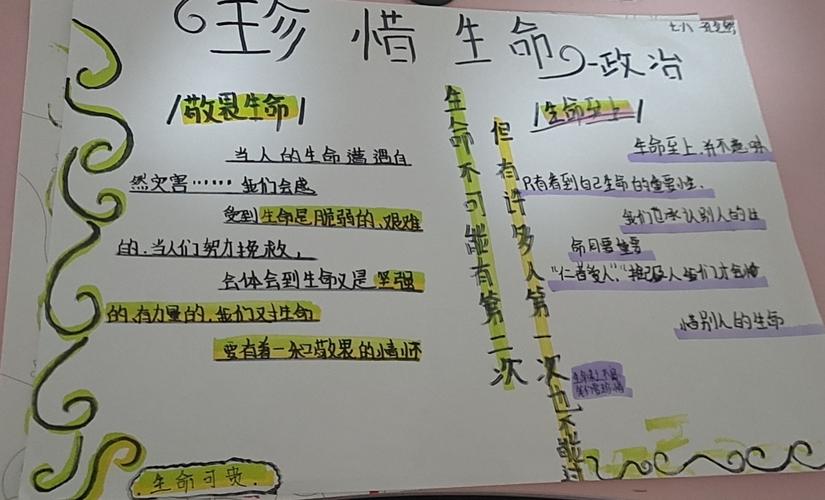 珍惜生命-政治
七八
敬畏生命
当人的生命遭遇自
然灾害……我们会感
受到生命是脆弱的、艰难
的.当人们努力挽救,
会体会到生命又是坚强
的,有力量的,我们对生命
要有着一份敬畏的情怀
生命可贵.
生命不可能有第二次
但有许多人第一次也不能
生命至上
生命至上,并不意味
只有看到自己生命的重要性.
我们也承认别人的生
命同要重要
"仁者爱人",我们才会
惜别人的生命